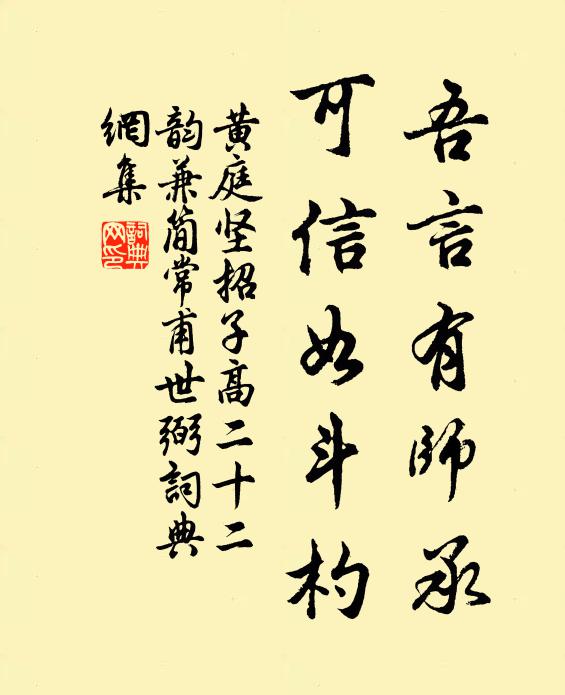 吾言有師承
可信如斗杓
黄庭坚招子高二十二
韵兼简常甫世弼詞典
網集
詞典
网印